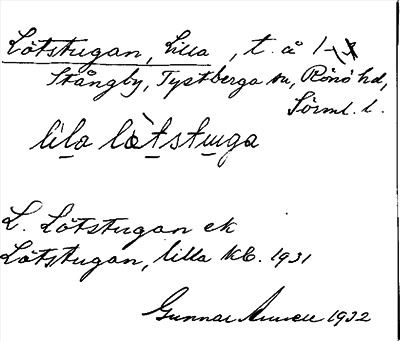 Lötstugan, Lilla, t. å
Stångby, Tystberga sn, Rönö hd,
Sörml. l.
lila lötstuga
L. Lötstugan ek
Lötstugan, lilla kb. 1931
Gunnar 1932